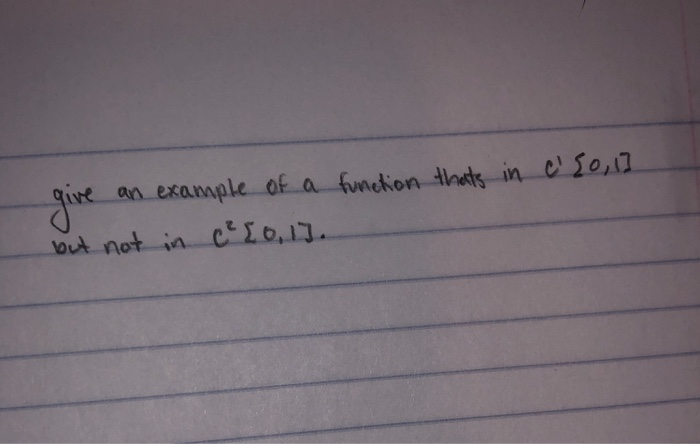 give an example of a function thats in C' [0,1]
but not in C² [0,1].